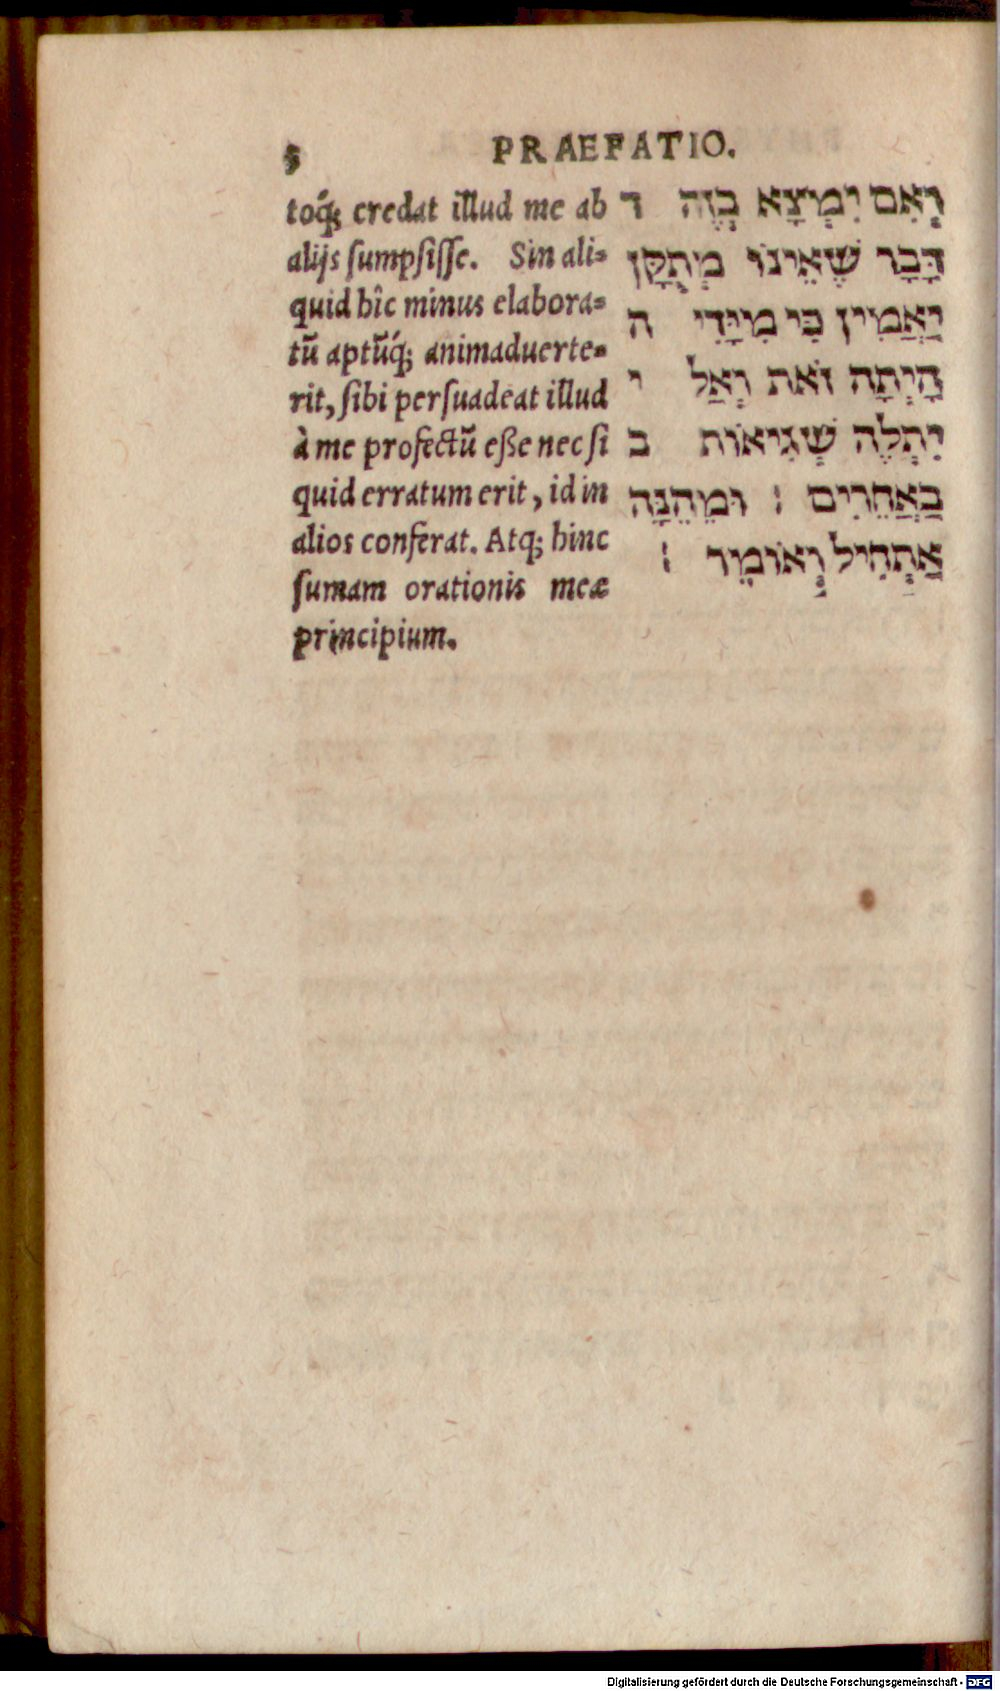 PRAEFATIO.
toq́; credat illud me ab
alijs ſumpſiſſe. Sin ali⸗
quid hîc minus elabora⸗
tũ aptũq́; animaduerte⸗
rit, ſibi perſuadeat illud
à me profectũ eße nec ſi
quid erratum erit, id in
alios conferat. Atq; hinc
ſumam orationis meæ
principium.
וְאִם יִמְצָא בְּזֶה ד
דָּבָר שֶׁאֵינוֹ מְתֻקָּן
יַאֲמִין כִּי מִיָּדִי ה
הָיְתָה זֹאת וְאַל י
יִתְלֶה שְׁגִיאוֹת ב
בַּאֲחֵרִים ׃ וּמֵהֵנָּה
אַתְחִיל וְאוֹמֵר ׃
Digitalisierung gefördert durch die Deutsche Forschungsgemeinschaft - DFG